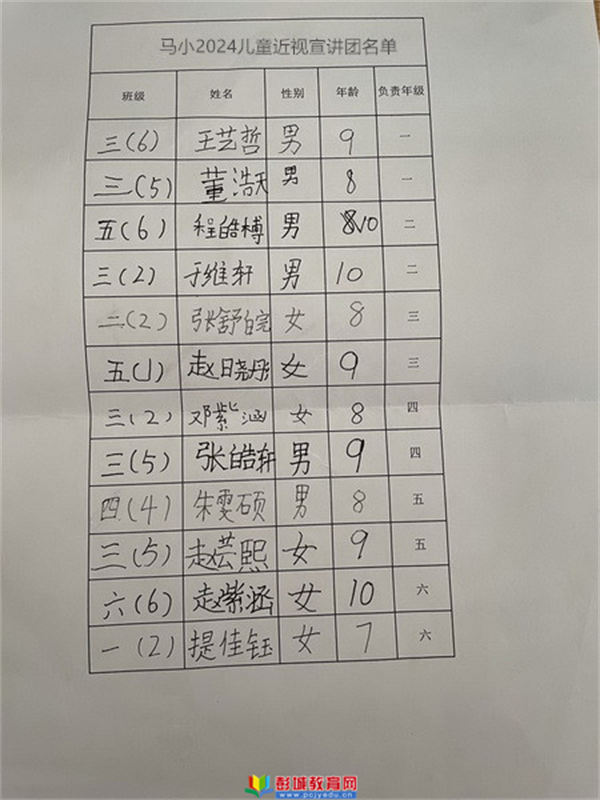 马小2024儿童近视宣讲团名单
班级 姓名 性别 年龄 负责年级
三(6) 王艺哲 男 9 一
三(5) 董浩天 男 8 一
五(6) 程皓榑 男 10 二
三(2) 于维轩 男 10 二
二(2) 张舒皖 女 8 三
五(1) 赵晓彤 女 9 三
三(2) 邓紫涵 女 8 四
三(5) 张皓轩 男 9 四
四(4) 朱雯硕 男 8 五
三(5) 赵芸熙 女 9 五
六(6) 赵紫涵 女 10 六
一(2) 提佳钰 女 7 六
彭城教育网
www.pcjyedu.cn